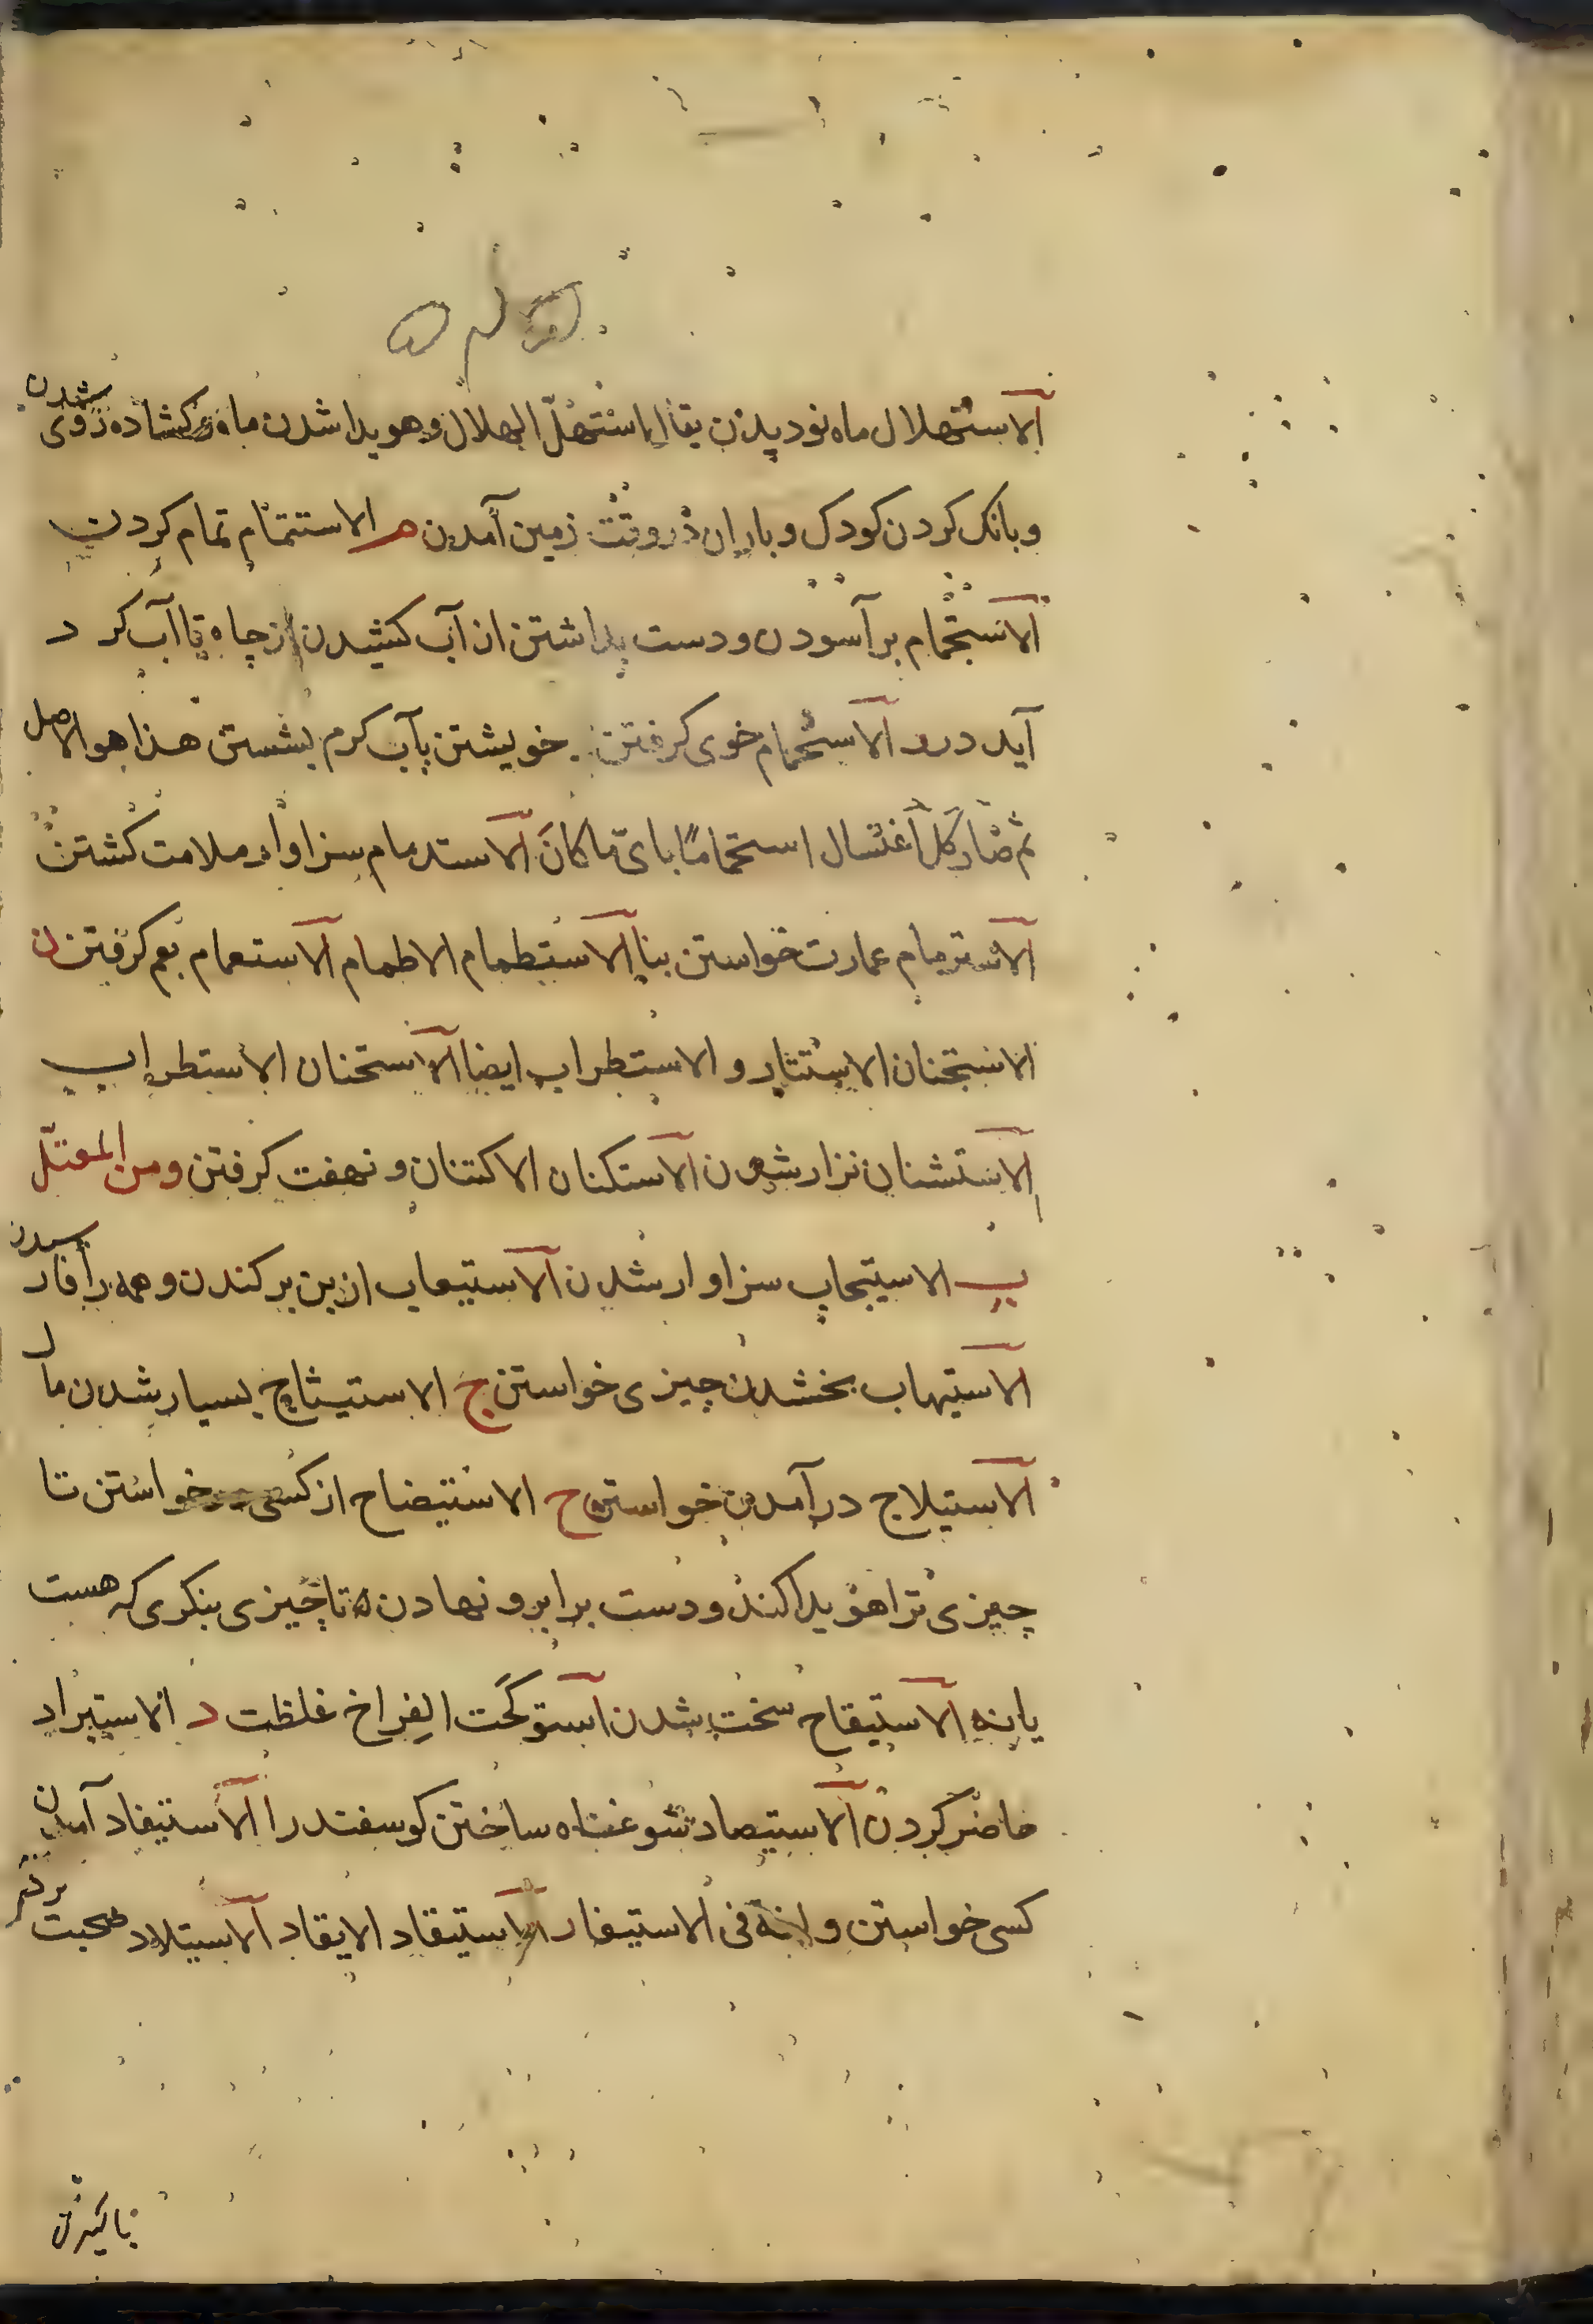 الاستهلال ماه نو دیدن یقال استهلّ الهلال و هویدا شدن ماه و کشاده روی شدن
و بانک کردن کودک و باران در وقت زمین آمدن م الاستتمام تمام کردن
الاستجمام برآسودن و دست بداشتن از آب کشیدن از چاه تا آب کرد
آید درو الاستحمام خوی کرفتن خویشتن بآب کرم بشستن هذا هو الاصل
ثم صار کل اغتسال استحماما بای ما کان الاستذمام سزاوار ملامت کشتن
الاسترمام عمارت خواستن بنا الاستطمام الاطمام الاستعمام بعم کرفتن ن
الاستجنان الاستتار و الاستطراب ایضا الاستحنان الاستطراب
الاستشنان نزار شدن الاستکنان الاکتنان و نهفت کرفتن ومن المعتل
ب الاستیجاب سزاوار شدن الاستیعاب از بن برکندن و همه را فا رسیدن
الاستیهاب بخشدن چیزی خواستن ج الاستیثاج بسیار شدن مال
الاستیلاج درآمدن خواستن ح الاستیضاح از کسی خواستن تا
چیزی ترا هویدا کند و دست برابرو نهادن تا چیزی بنکری که هست
یا نه الاستیقاح سخت شدن استوکحت الفراخ غلظت د الاستیراد
حاضر کردن الاستیصاد شوغناه ساختن کوسفند را الاستیفاد آمدن
کسی خواستن و لانه فی الاستیفار الاستیقاد الایقاد الاستیلاد صحبت